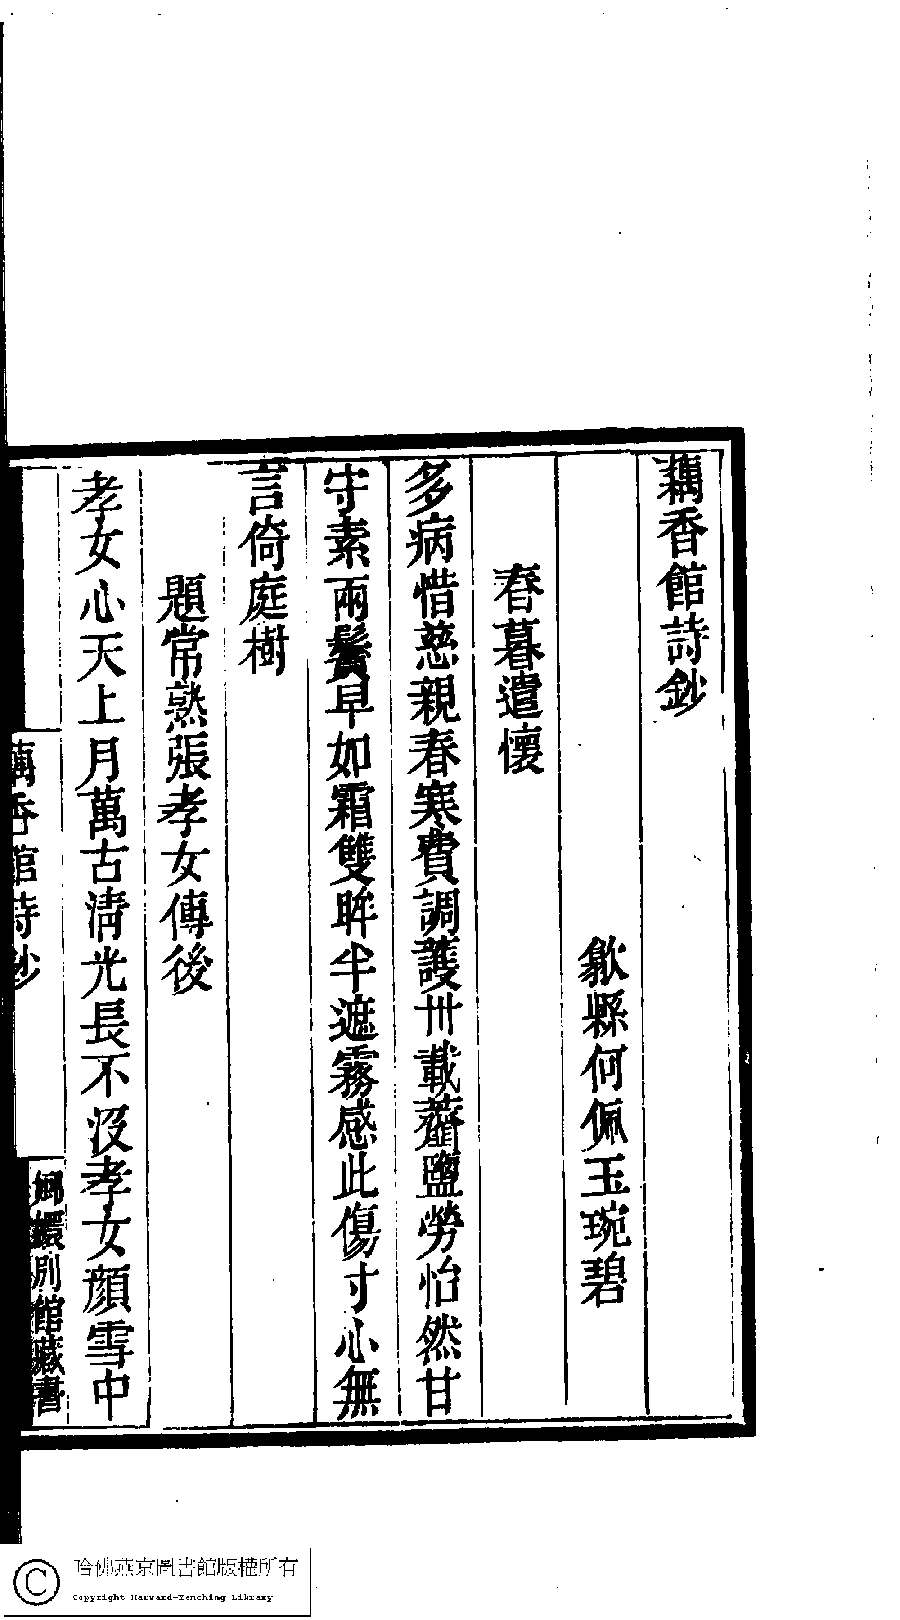 藕香館詩鈔
歙縣何佩玉琬碧
春暮遣懷
多病惜慈親春寒費調護卅載虀鹽勞怡然甘
守素兩鬢早如霜雙眸半遮霧感此傷寸心無
言倚庭樹
題常熟張孝女傳後
孝女心天上月萬古清光長不沒孝女顔雪中
藕香館詩鈔
嫏嬛別館藏書
哈佛燕京圖書館版權所有
Copyright Harvard-Yenching Library